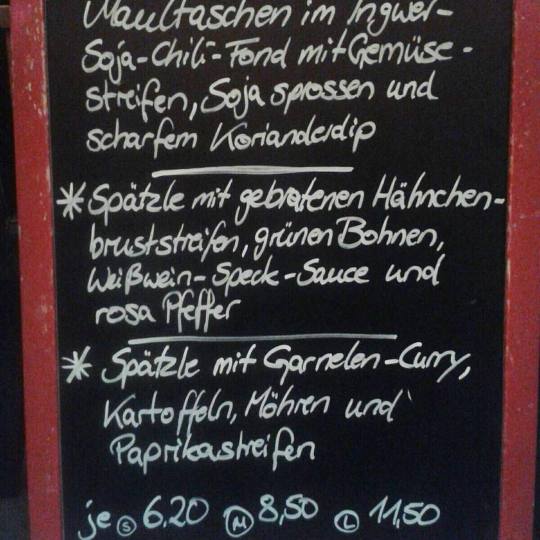 Maultaschen im Ingwer-
Soja-Chili-Fond mit Gemüse-
streifen, Soja sprossen und
scharfem Korianderdip
* Spätzle mit gebratenen Hähnchen-
bruststreifen, grünen Bohnen,
Weißwein-Speck-Sauce und
rosa Pfeffer
* Spätzle mit Garnelen-Curry,
Kartoffeln, Möhren und
Paprikastreifen
je S 6.20 M 8,50 L 11,50